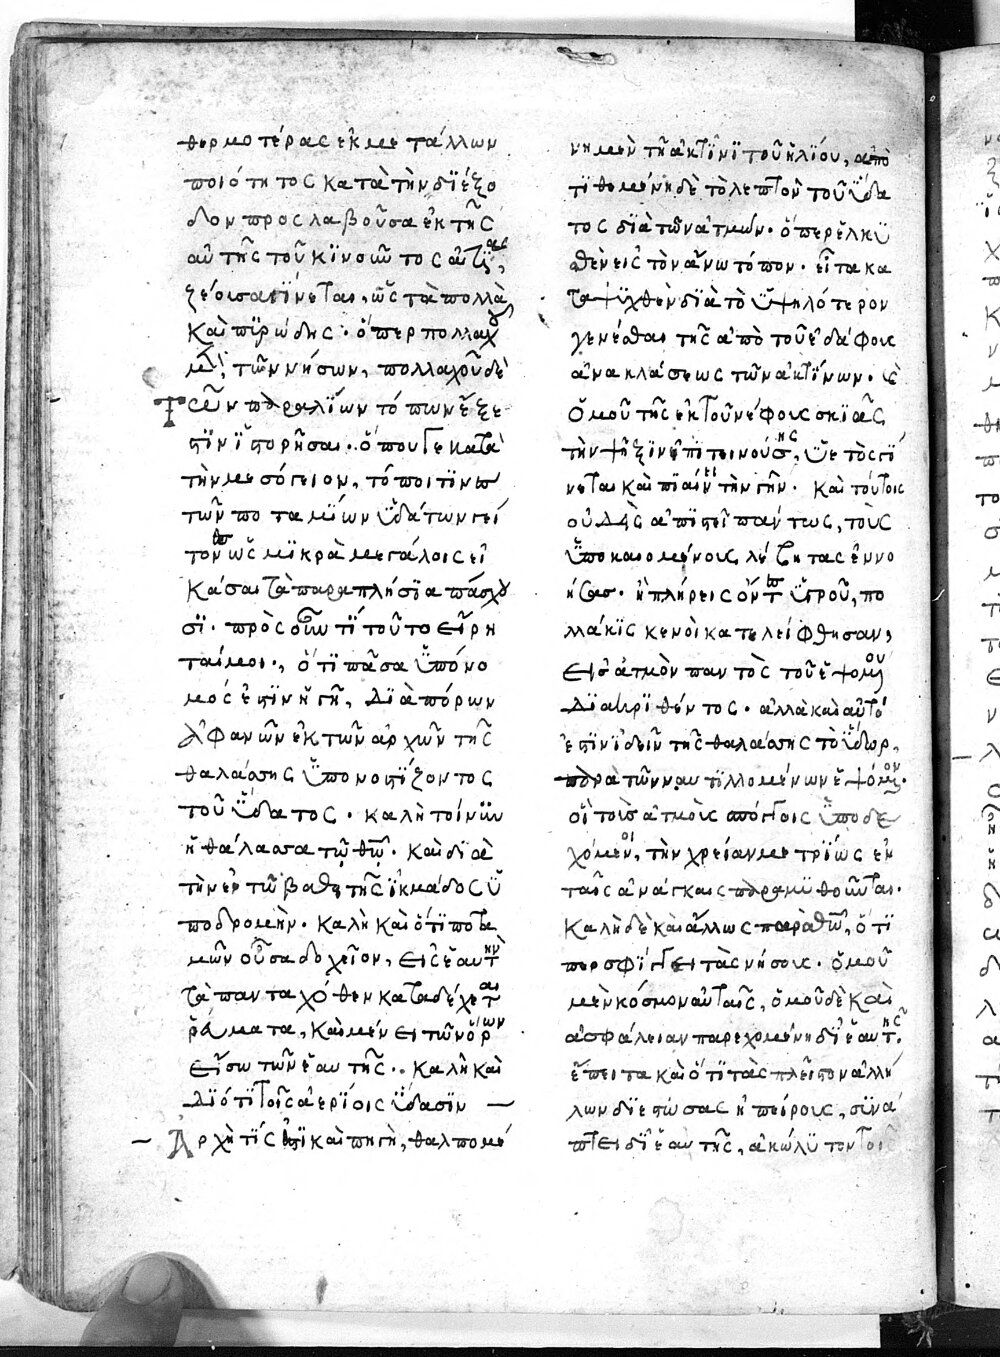 θερμοτέρας ἐκ μετάλλων
ποιότητος κατὰ τὴν διέξο
δον προσλαβοῦσα ἐκ τῆς
αὐτῆς τοῦ κινοῦντος αἰτίας,
ζέουσα γίνεται, ὡς τὰ πολλὰ
καὶ πυρώδης· ὅπερ πολλαχοῦ
μὲν τῶν νήσων, πολλαχοῦ δὲ
τῶν παραλίων τόπων ἔξε
στιν ἱστορῆσαι· ὅπου γε κατὰ
τὴν μεσόγειον, τόποι τινὲς
τῶν ποταμίων ὑδάτων γεί
τονες ὡς μικρὰ μεγάλοις εἰ
κάσαι τὰ παραπλήσια πάσχου
σι· πρὸς οὖν τί τοῦτο εἴρη
ταί μοι, ὅτι πᾶσα ὑπόνο
μός ἐστιν ἡ γῆ, διὰ πόρων
ἀφανῶν ἐκ τῶν ἀρχῶν τῆς
θαλάσσης ὑπονοστίζοντος
τοῦ ὕδατος· καλὴ τοίνυν
ἡ θάλασσα τῷ θῶ· καὶ διὰ
τὴν ἐν τῷ βάθει τῆς ἰκμάδος ὑ
ποδρομὴν· καλὴ καὶ ὅτι ποτα
μῶν οὖσα δοχεῖον, εἰς ἑαυτὴν
τὰ πανταχόθεν καταδέχεται
ῥεύματα, καὶ μένει τῶν ὅρων
εἴσω τῶν ἑαυτῆς· καλὴ καὶ
διότι τοῖς ἀερίοις ὕδασιν
ἀρχὴ τίς ἐστι καὶ πηγὴ, θαλπομέ
νη μὲν τῇ ἀκτῖνι τοῦ ἡλίου, ἀπο
τιθεμένη δὲ τὸ λεπτὸν τοῦ ὕδα
τος διὰ τῶν ἀτμῶν· ὅπερ ἑλκυ
σθὲν εἰς τὸν ἄνω τόπον· εἶτα κα
ταψυχθὲν διὰ τὸ ὑψηλότερον
γενέσθαι τῆς ἀπὸ τοῦ ἐδάφους
ἀνακλάσεως τῶν ἀκτίνων· καὶ
ὁμοῦ τῆς ἐκ τοῦ νέφους σκιᾶς
τὴν ψῦξιν ἐπιτεινούσης, ὑετὸς γί
νεται καὶ πιαίνει τὴν γῆν· καὶ τούτοις
οὐδεὶς ἀπιστεῖ πάντως, τοὺς
ὑποκαιομένους λέβητας ἐννο
ήσας· ἢ πλήρεις ὄντες ὑγροῦ, πο
λλάκις κενοὶ κατελείφθησαν,
εἰς ἀτμὸν παντὸς τοῦ ἑψομένου
διακριθέντος· ἀλλὰ καὶ αὐτό
ἐστιν ἰδεῖν τῆς θαλάσσης τὸ ὕδωρ,
παρὰ τῶν ναυτιλλομένων ἑψόμενον·
οἳ τοὺς ἀτμοὺς σπόγγοις ὑποδε
χόμενοι, τὴν χρείαν μετρίως ἐν
ταῖς ἀνάγκαις παραμυθοῦνται·
καλὴ δὲ καὶ ἄλλως παρὰ θῶ, ὅτι
περισφίγγει τὰς νήσους· ὁμοῦ
μὲν κόσμον αὐταῖς, ὁμοῦ δὲ καὶ
ἀσφάλειαν παρεχομένη δι' ἑαυτῆς·
ἔπειτα καὶ ὅτι τὰς πλεῖστον ἀλλή
λων διεστώσας ἠπείρους, συνά
πτει δι' ἑαυτῆς, ἀκώλυτον τοῖς